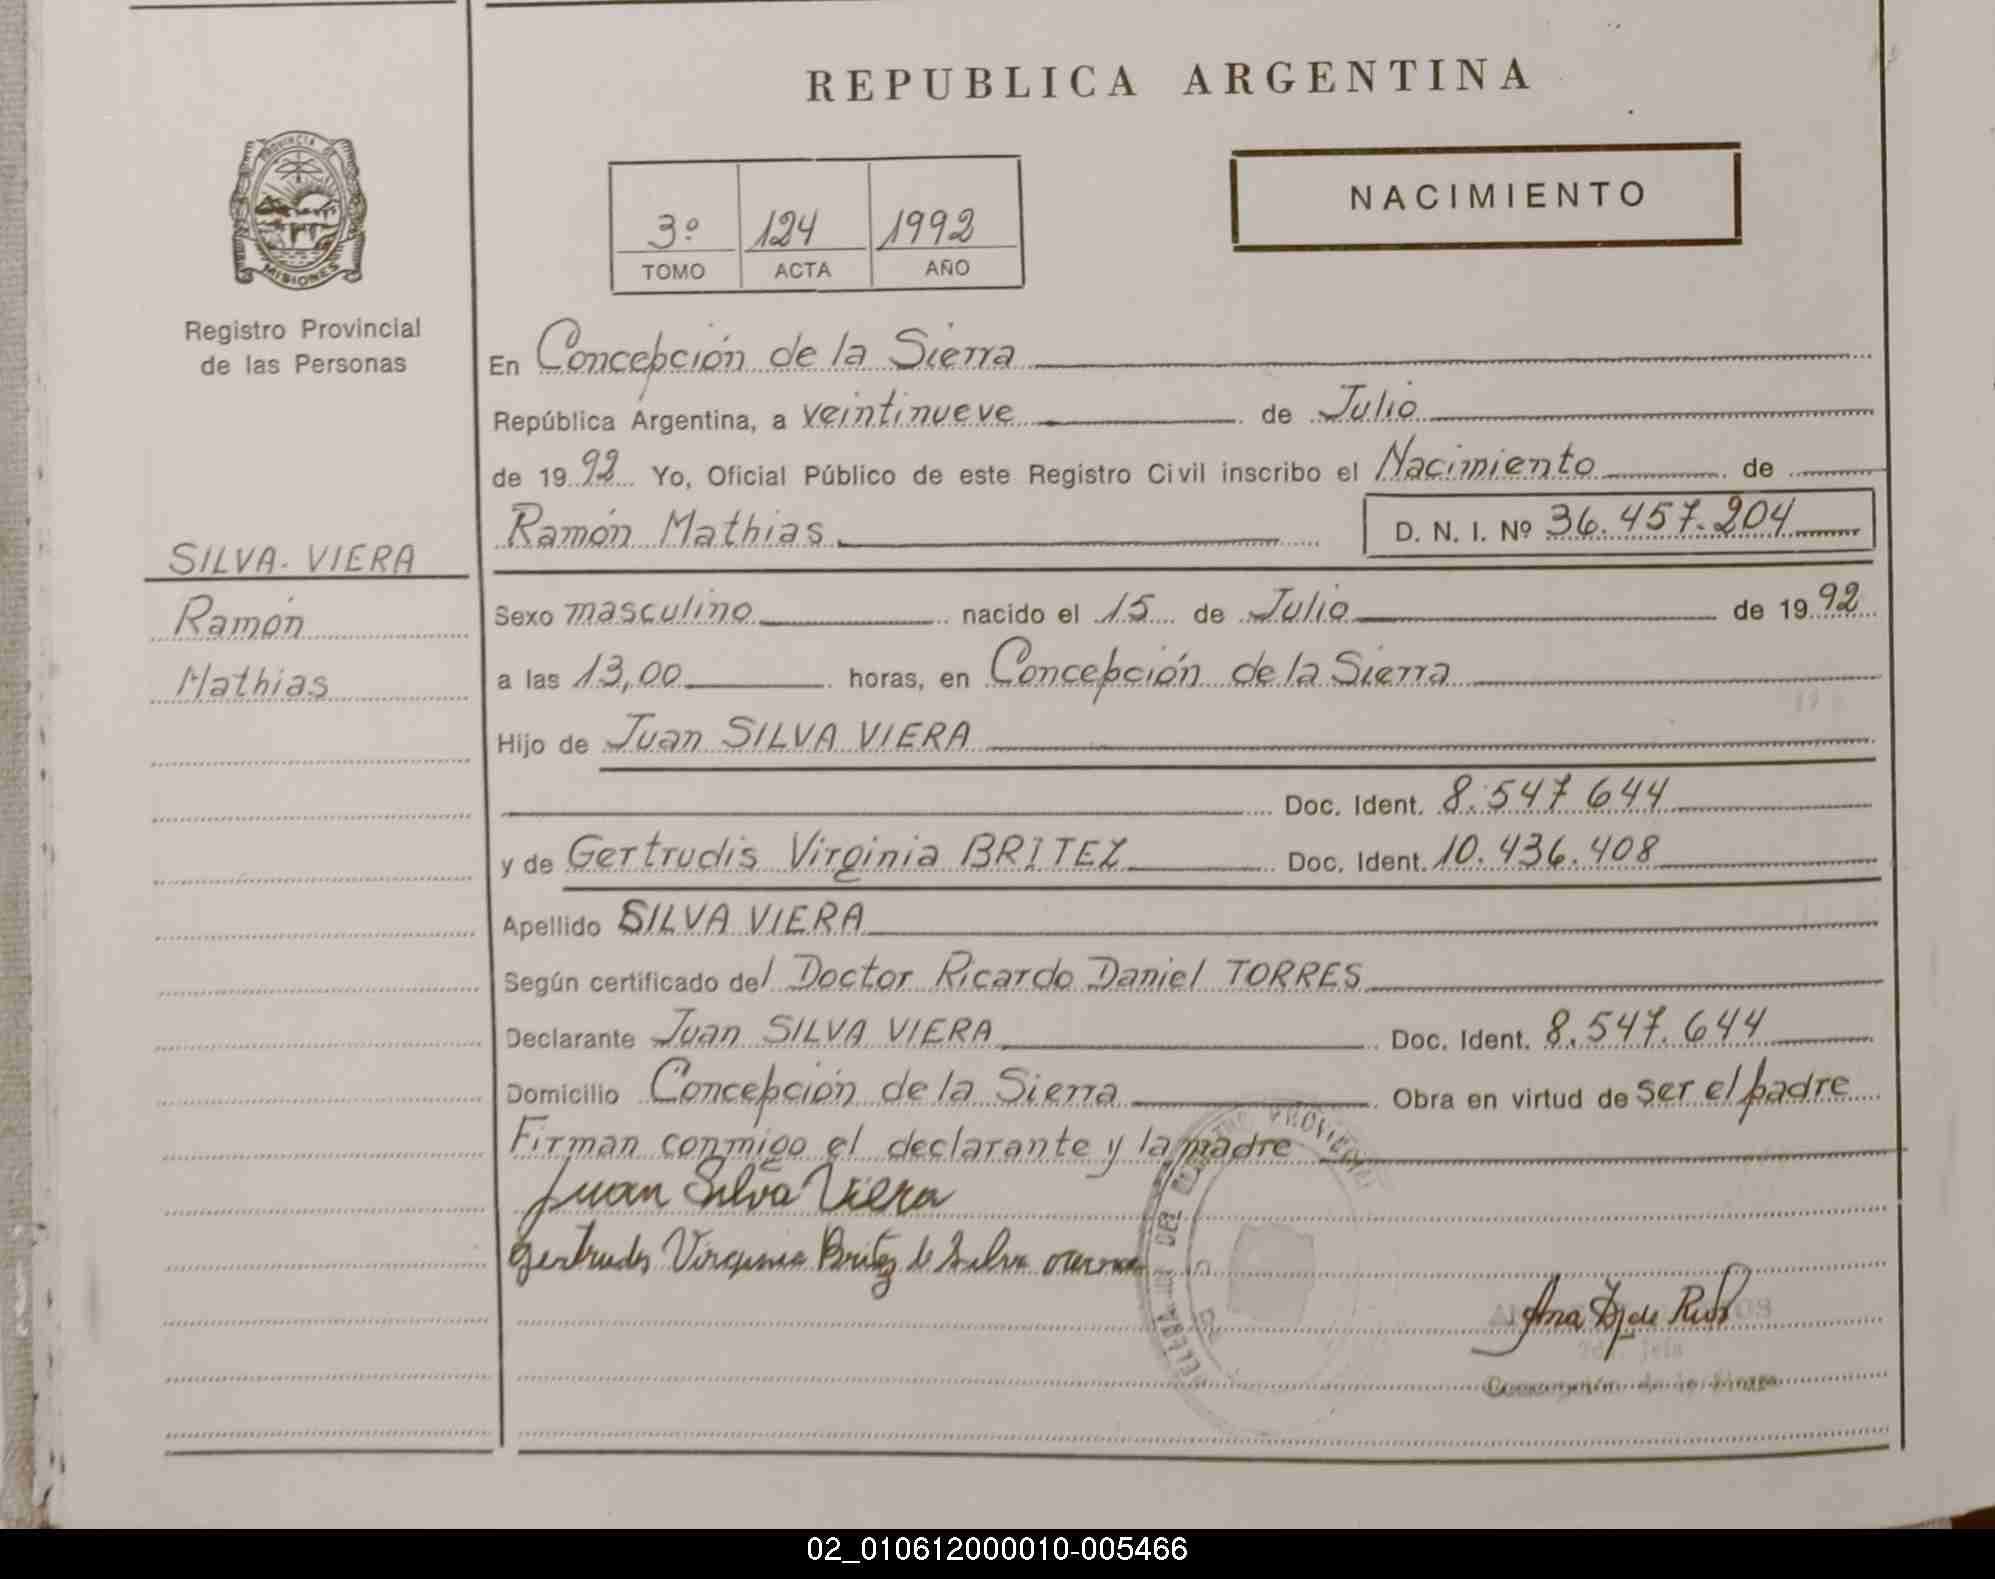 REPUBLICA ARGENTINA
PROVINCIA DE
MISIONES
Registro Provincial
de las Personas
3º 124 1992
TOMO ACTA AÑO
NACIMIENTO
SILVA-VIERA
Ramón
Mathias
En Concepción de la Sierra
República Argentina, a veintinueve de Julio
de 1992 Yo, Oficial Público de este Registro Civil inscribo el Nacimiento de
Ramón Mathias D. N. I. Nº 36.457.204
Sexo masculino nacido el 15 de Julio de 1992
a las 13,00 horas, en Concepción de la Sierra
Hijo de Juan SILVA VIERA
Doc. Ident. 8.547 644
y de Gertrudis Virginia BRITEZ Doc. Ident. 10.436.408
Apellido SILVA VIERA
Según certificado del Doctor Ricardo Daniel TORRES
Declarante Juan SILVA VIERA Doc. Ident. 8.547.644
Domicilio Concepción de la Sierra Obra en virtud de ser el padre
Firman conmigo el declarante y la madre
Juan Silva Viera
Gertrudis Virginia Britez de Silva
Ana
Concepción de la Sierra
02_010612000010-005466